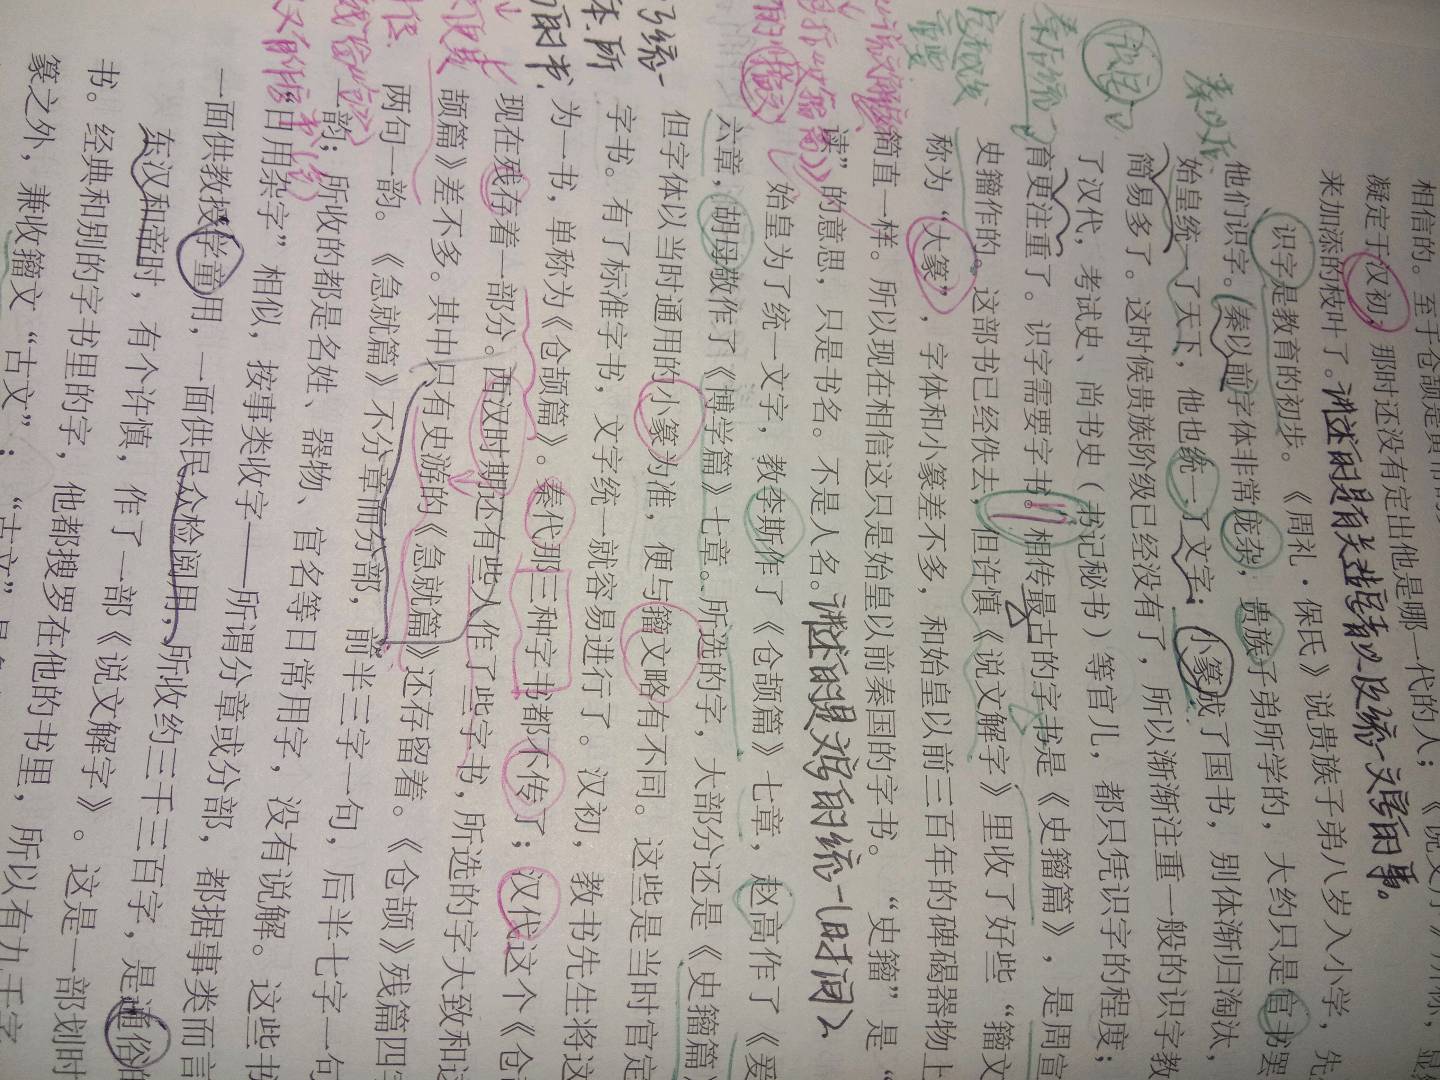 相信的。至于仓颉是黄帝的
凝定于汉初，那时还没有定出他是哪一代的人；《说文序》所称，显
来加添的枝叶了。讲述的是有关造字者以及统一文字的事。
识字是教育的初步。《周礼·保氏》说贵族子弟八岁入小学，先
他们识字。秦以前字体非常庞杂，贵族子弟所学的，大约只是官书罢
始皇统一了天下，他也统一了文字；小篆成了国书，别体渐归淘汰，
简易多了。这时候贵族阶级已经没有了，所以渐渐注重一般的识字教
了汉代，考试史、尚书史（书记秘书）等官儿，都只凭识字的程度；
育更注重了。识字需要字书。相传最古的字书是《史籀篇》，是周宣
史籀作的。这部书已经佚去，但许慎《说文解字》里收了好些“籀文
称为“大篆”，字体和小篆差不多，和始皇以前三百年的碑碣器物上
简直一样。所以现在相信这只是始皇以前秦国的字书。“史籀”是“
读”的意思，只是书名。不是人名。讲述的是文字的统一(时间)
始皇为了统一文字，教李斯作了《仓颉篇》七章，赵高作了《爰
六章，胡母敬作了《博学篇》七章。所选的字，大部分还是《史籀篇》
但字体以当时通用的小篆为准，便与籀文略有不同。这些是当时官定
字书。有了标准字书，文字统一就容易进行了。汉初，教书先生将这
为一书，单称为《仓颉篇》。秦代那三种字书都不传了；汉代这个《仓
现在残存着一部分。西汉时期还有些人作了些字书，所选的字大致和这
颉篇》差不多。其中只有史游的《急就篇》还存留着。《仓颉》残篇四字
两句一韵。《急就篇》不分章而分部，前半三字一句，后半七字一句
韵；所收的都是名姓、器物、官名等日常用字，没有说解。这些书
“日用杂字”相似，按事类收字——所谓分章或分部，都据事类而言
一面供教授学童用，一面供民众检阅用，所收约三千三百字，是通俗的
东汉和帝时，有个许慎，作了一部《说文解字》。这是一部划时
书。经典和别的字书里的字，他都搜罗在他的书里，所以有九千字
篆之外，兼收籀文“古文”；“古文”是